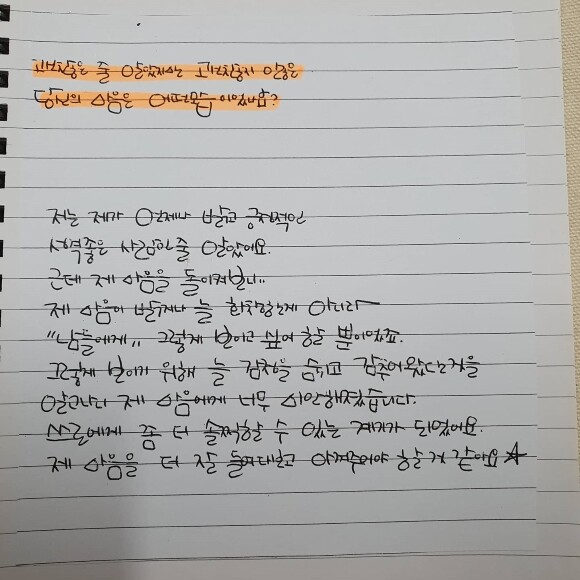 괜찮은 줄 알았지만 괜찮지 않은
당신의 마음은 어떤모습 이었나요?
저는 제가 언제나 밝고 긍정적인
성격좋은 사람인 줄 알았어요.
근데 제 마음을 돌이켜보니..
제 마음이 밝거나 늘 환한게 아니라
"남들에게,, 그렇게 보이고 싶어 했을 뿐이었죠.
그렇게 보이기 위해 늘 감정을 숨기고 감추어왔단것을
알고나니 제 마음에게 너무 미안해졌습니다.
스스로에게 좀 더 솔직해질 수 있는 계기가 되었어요.
제 마음을 더 잘 들여다보고 아껴주어야 할 것 같아요 ☆